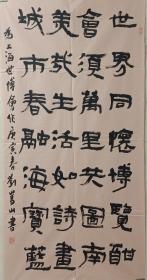 世界同襟博覽酣
會須萬里共圖南
美哉生活如詩畫
城市春融海寶藍
為上海世博會作庚寅春劉嵩山書